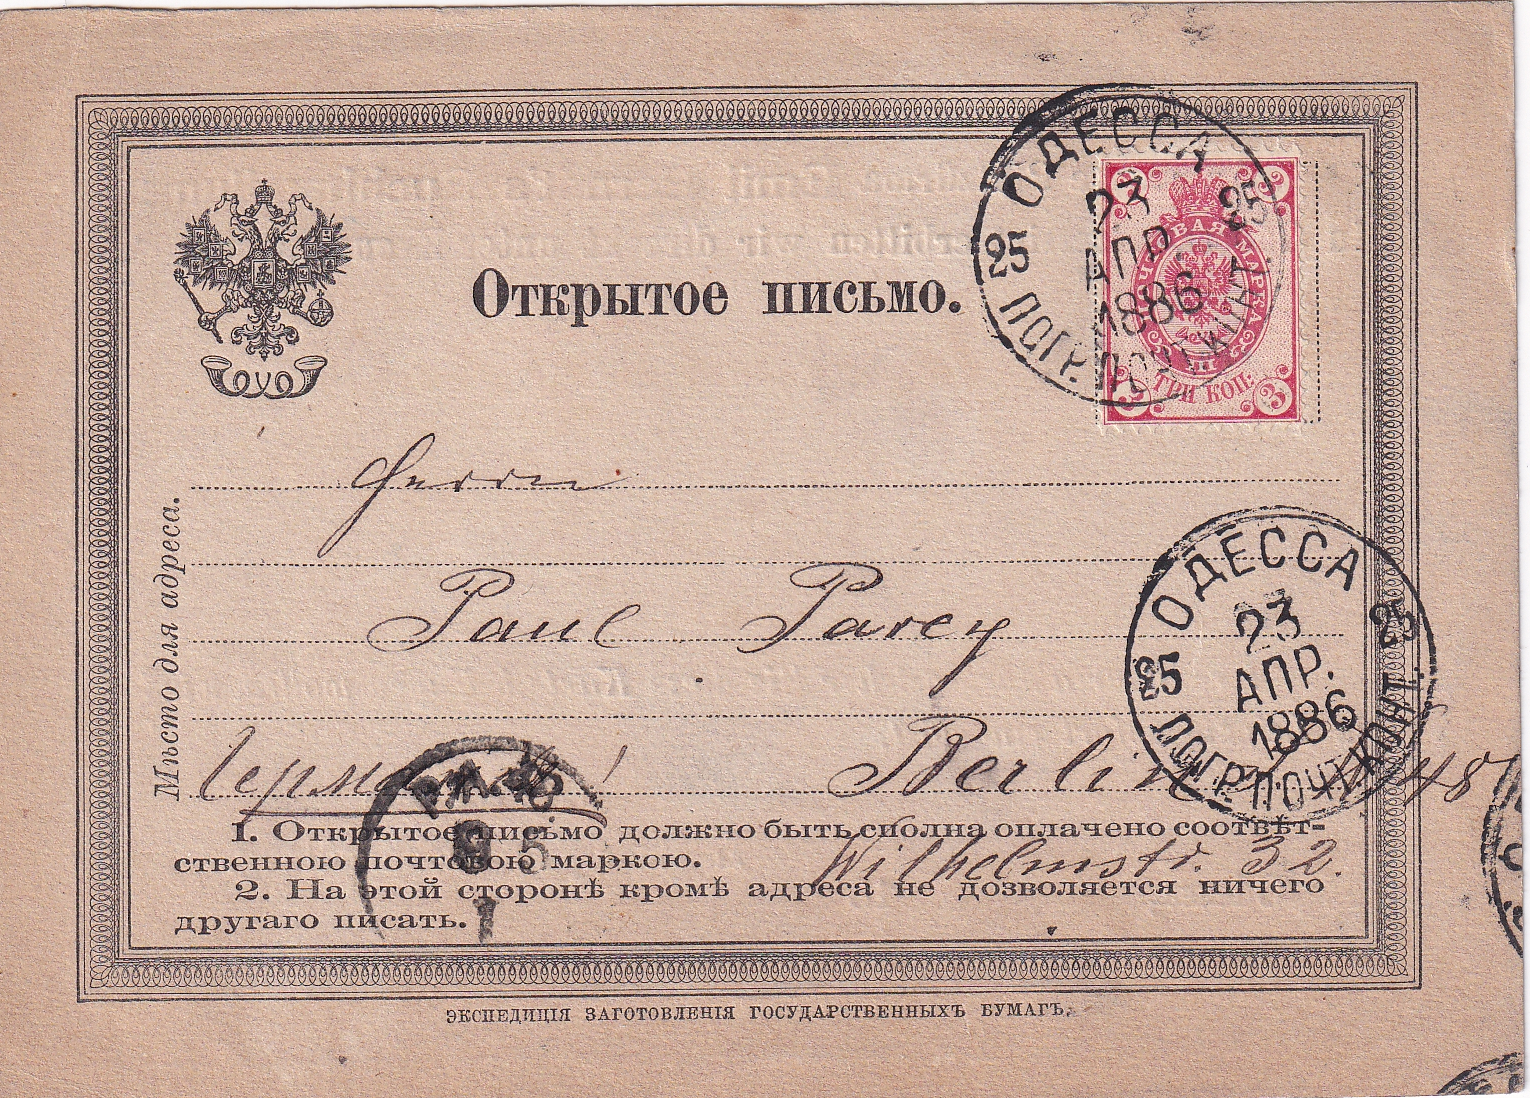 ОДЕССА
25 25
23
АПР.
1886
ПОГР. ПОЧТ. КОНТ.
ПОЧТОВАЯ МАРКА
ТРИ КОП:
3
Открытое письмо.
Мѣсто для адреса.
Herrn
Paul Parey
Германія
Berlin
48
Wilhelmstr. 32.
ОДЕССА
25 25
23
АПР.
1886
ПОГР. ПОЧТ. КОНТ.
9 5
1
1. Открытое письмо должно быть сполна оплачено соотвѣт-
ственною почтовою маркою.
2. На этой сторонѣ кромѣ адреса не дозволяется ничего
другаго писать.
ЭКСПЕДИЦІЯ ЗАГОТОВЛЕНІЯ ГОСУДАРСТВЕННЫХЪ БУМАГЪ.